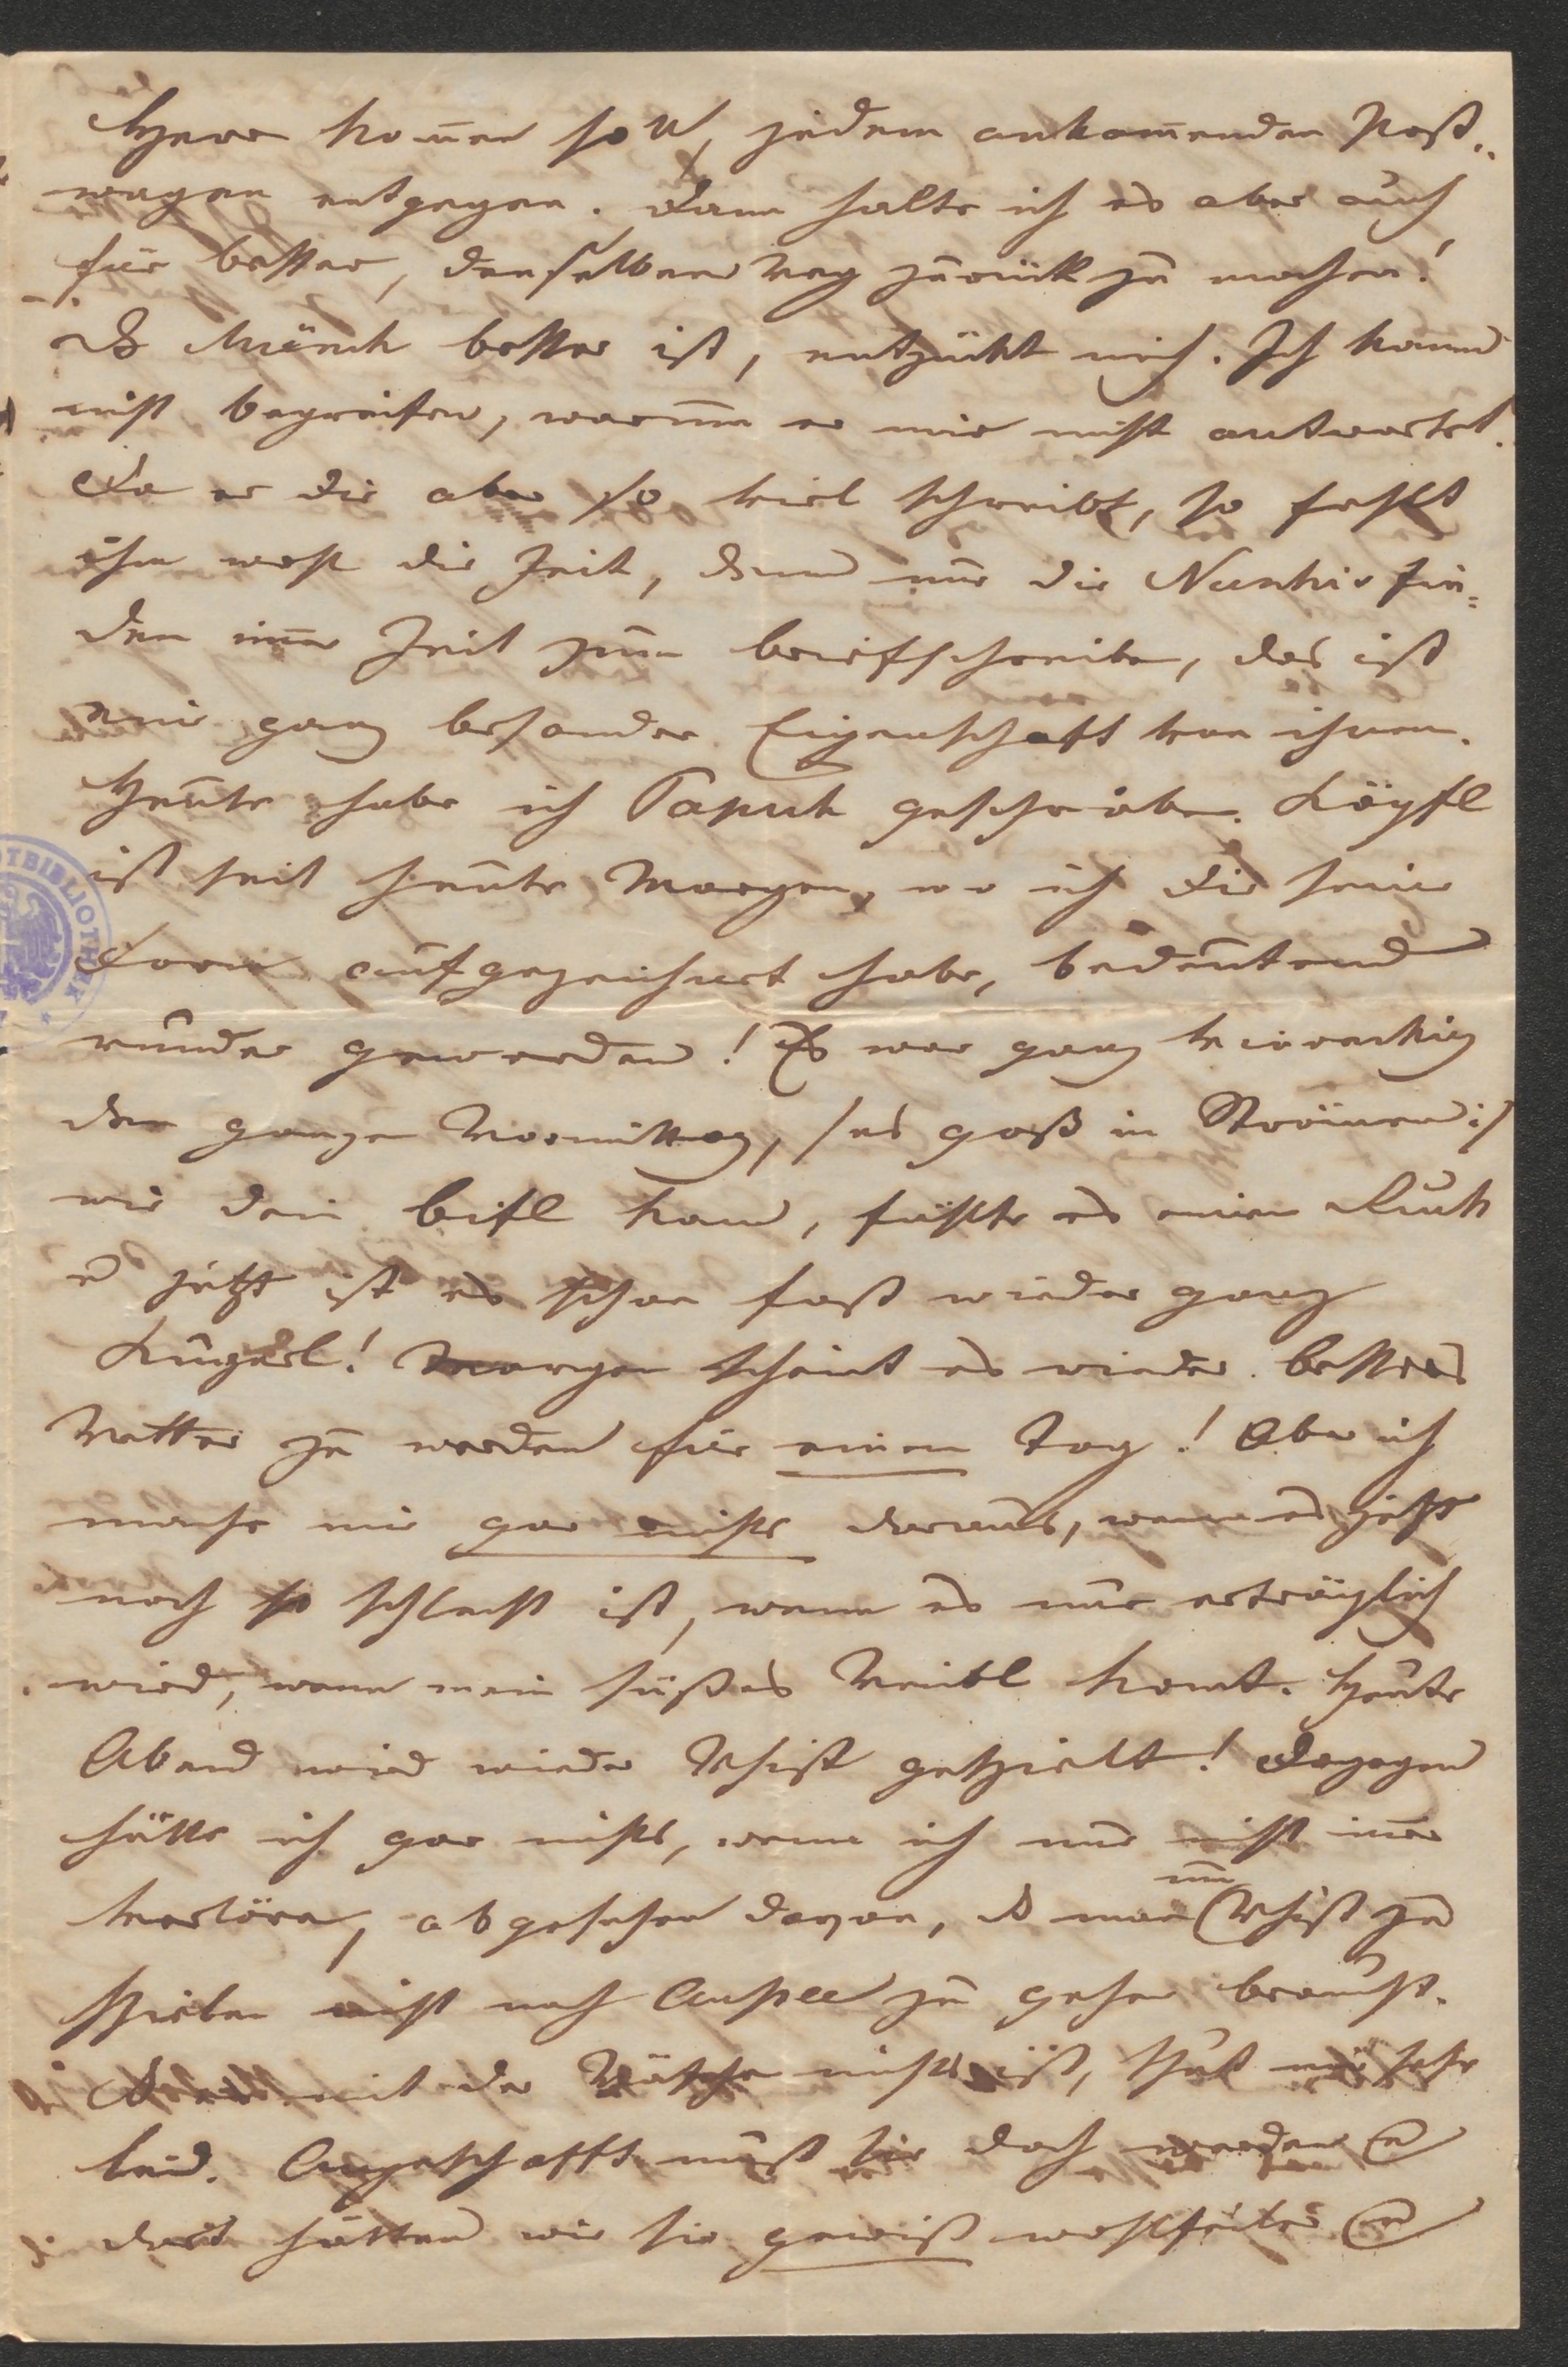 Herr komen soll, jedem ankomenden Post-
wagen entgegen. Dann halte ich es aber auch
für besser, denselben Weg zurück zu machen!
Ds Muënk besser ist, entzückt mich. Ich kann
nicht begreifen, warum er mir nicht antwortet.
Da er dir aber so viel schreibt, so fehlt
ihm wohl die Zeit, denn nur die finden
imer Zeit zum briefschreiben, das ist
eine ganz besondere Eigenschaft von ihnen.
Heute habe ich geschrieben. Köpfl
ist seit heute Morgen, wo ich dir seine
Form aufgezeichnet habe, bedeutend
runder geworden! Es war ganz viereckig
den ganzen Vormittag, /:es goß in Strömen:/
wie dein brifl kam, fühlte es einen Ruck
u jetzt ist es schon fast wieder ganz
Kugerl! Morgen scheint es wieder besseres
Wetter zu werden für einen Tag! Aber ich
mache mir gar nichts daraus, wenn es jetzt
noch so schlecht ist, wenn es nur erträglich
wird, wenn mein süßes Weibl komt. Heute
Abend wird wieder Whist gespielt! Dagegen
hätte ich gar nichts, wenn ich nur nicht imer
verlöre, abgesehen davon, ds man um Whist zu
spielen nicht nach Aussee zu gehen braucht.
Daß mit der Wäsche nichts ist, thut mir sehr
leid. Angeschafft muß sie doch werden u
dort hätten wir sie gewiß wohlfeiler u